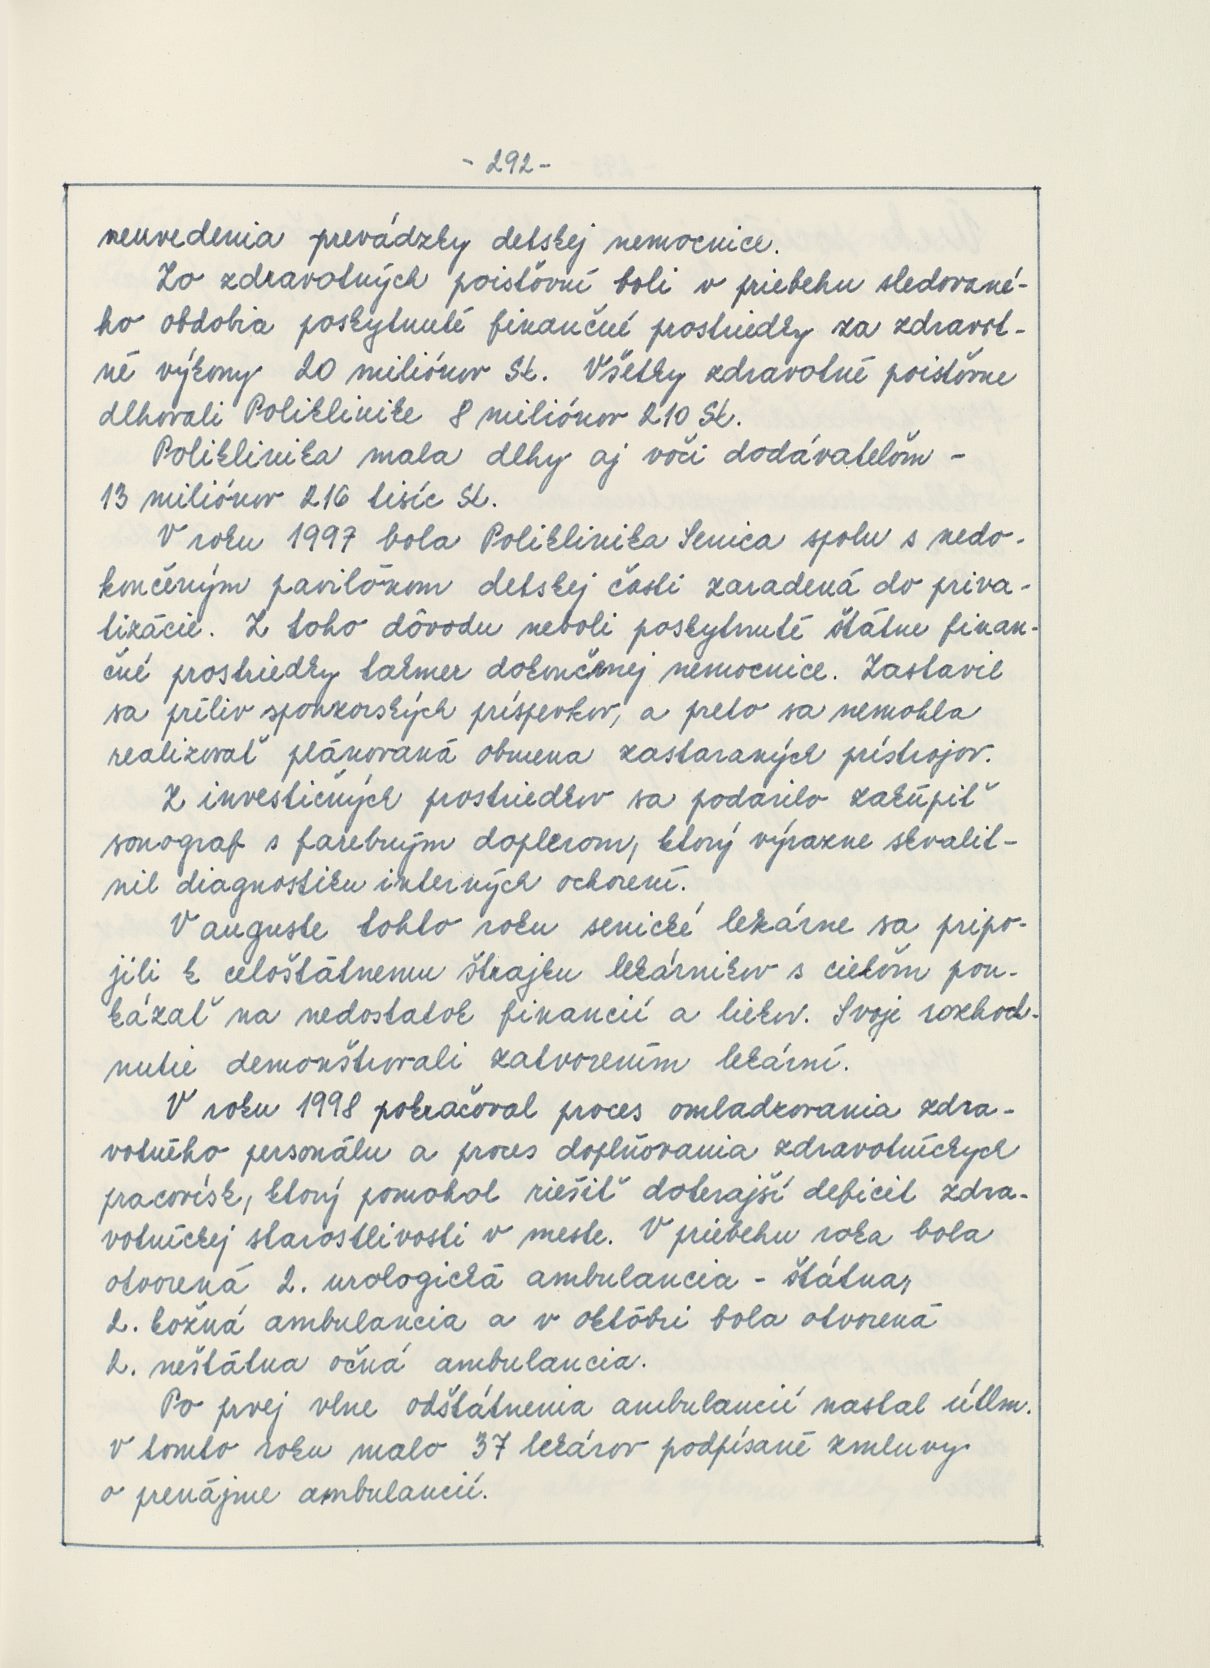 - 292 -
neuvedenia prevádzky detskej nemocnice.
Zo zdravotných poisťovní boli v priebehu sledované-
ho obdobia poskytnuté finančné prostriedky za zdravot-
né výkony 20 miliónov Sk. Všetky zdravotné poisťovne
dlhovali Poliklinike 8 miliónov 210 Sk.
Poliklinika mala dlhy aj voči dodávateľom -
13 miliónov 216 tisíc Sk.
V roku 1997 bola Poliklinika Senica spolu s nedo-
končeným pavilónom detskej časti zaradená do priva-
tizácie. Z toho dôvodu neboli poskytnuté štátne finan-
čné prostriedky takmer dokončenej nemocnice. Zastavil
sa príliv sponzorských príspevkov, a preto sa nemohla
realizovať plánovaná obmena zastaraných prístrojov.
Z investičných prostriedkov sa podarilo zakúpiť
sonograf s farebným doplerom, ktorý výrazne skvalit-
nil diagnostiku interných ochorení.
V auguste tohto roku senické lekárne sa pripo-
jili k celoštátnemu štrajku lekárnikov s cieľom pou-
kázať na nedostatok financií a liekov. Svoje rozhod-
nutie demonštrovali zatvorením lekární.
V roku 1998 pokračoval proces omladzovania zdra-
votného personálu a proces doplňovania zdravotníckych
pracovísk, ktorý pomohol riešiť doterajší deficit zdra-
votníckej starostlivosti v meste. V priebehu roka bola
otvorená 2. urologická ambulancia - štátna,
2. kožná ambulancia a v októbri bola otvorená
2. neštátna očná ambulancia.
Po prvej vlne odštátnenia ambulancií nastal útlm.
V tomto roku malo 37 lekárov podpísané zmluvy
o prenájme ambulancií.